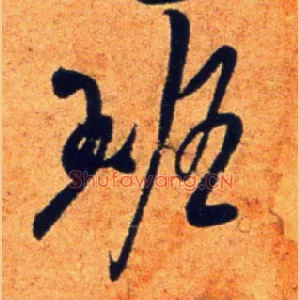 班
Shufawang.CN